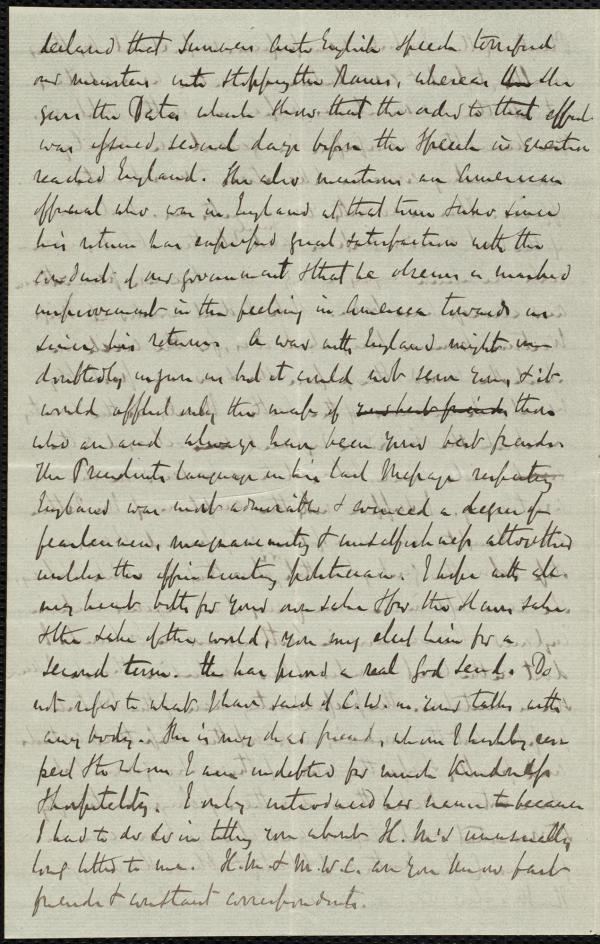 declared that Sumner's anti English speech terrified
our ministers into stopping the Rams, whereas the she
gives the Dates which show that the order to that effect
was issued several days before the Speech in question
reached England. She also mentions an American
official who was in England at that time & who since
his return has expressed great satisfaction with the
conduct of our government & that he observes a marked
improvement in the feeling in America towards us
since his return. A war with England might un
doubtedly injure us but it could not serve you, & it
would afflict only the mass of your best friends those
who are and always have been your best friends.
The President's language in his last Message respecting
England was most admirable & evinced a degree of
fearlessness, magnanimity & unselfishness altogether
unlike the office hunting politician. I hope with all
my heart both for your own sake & for the slaves sake
& the sake of the world, you may elect him for a
second term. He has proved a real God send. Do
not refer to what I have said of C.W. in your talks with
any body. She is my dear friend, whom I highly res
pect & to whom I am indebted for much kindness
& hospitality. I only introduced her name to because
I had to do so in telling you about H. M's unusually
long letter to me. H.M. & M.W.C. are you know fast
friends & constant correspondents.